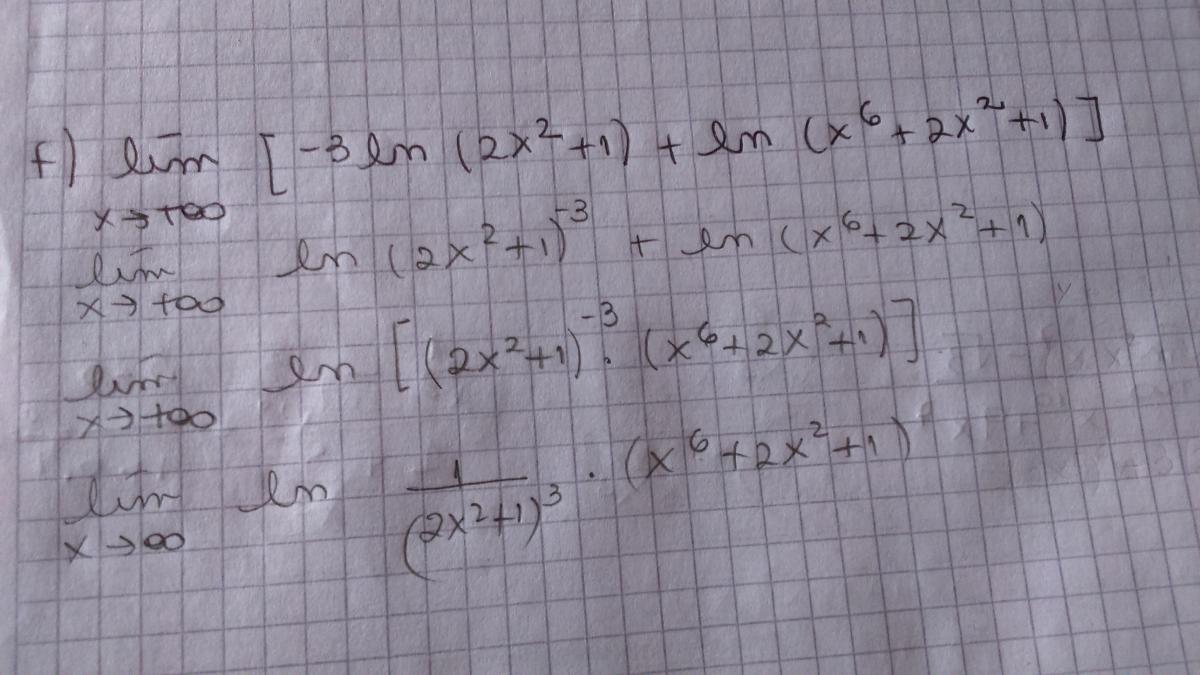 f) lím [-3 ln (2x² + 1) + ln (x⁶ + 2x² + 1)]
x → +∞
lím ln (2x² + 1)⁻³ + ln (x⁶ + 2x² + 1)
x → +∞
lím ln [(2x² + 1)⁻³ · (x⁶ + 2x² + 1)]
x → +∞
lím ln 1/(2x² + 1)³ · (x⁶ + 2x² + 1)
x → ∞